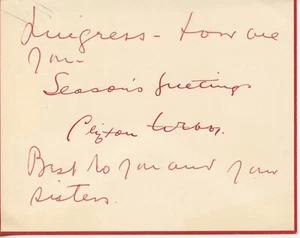 How are
you -
Season's Greetings
Clifton Webb.
Best to you and your
sisters.